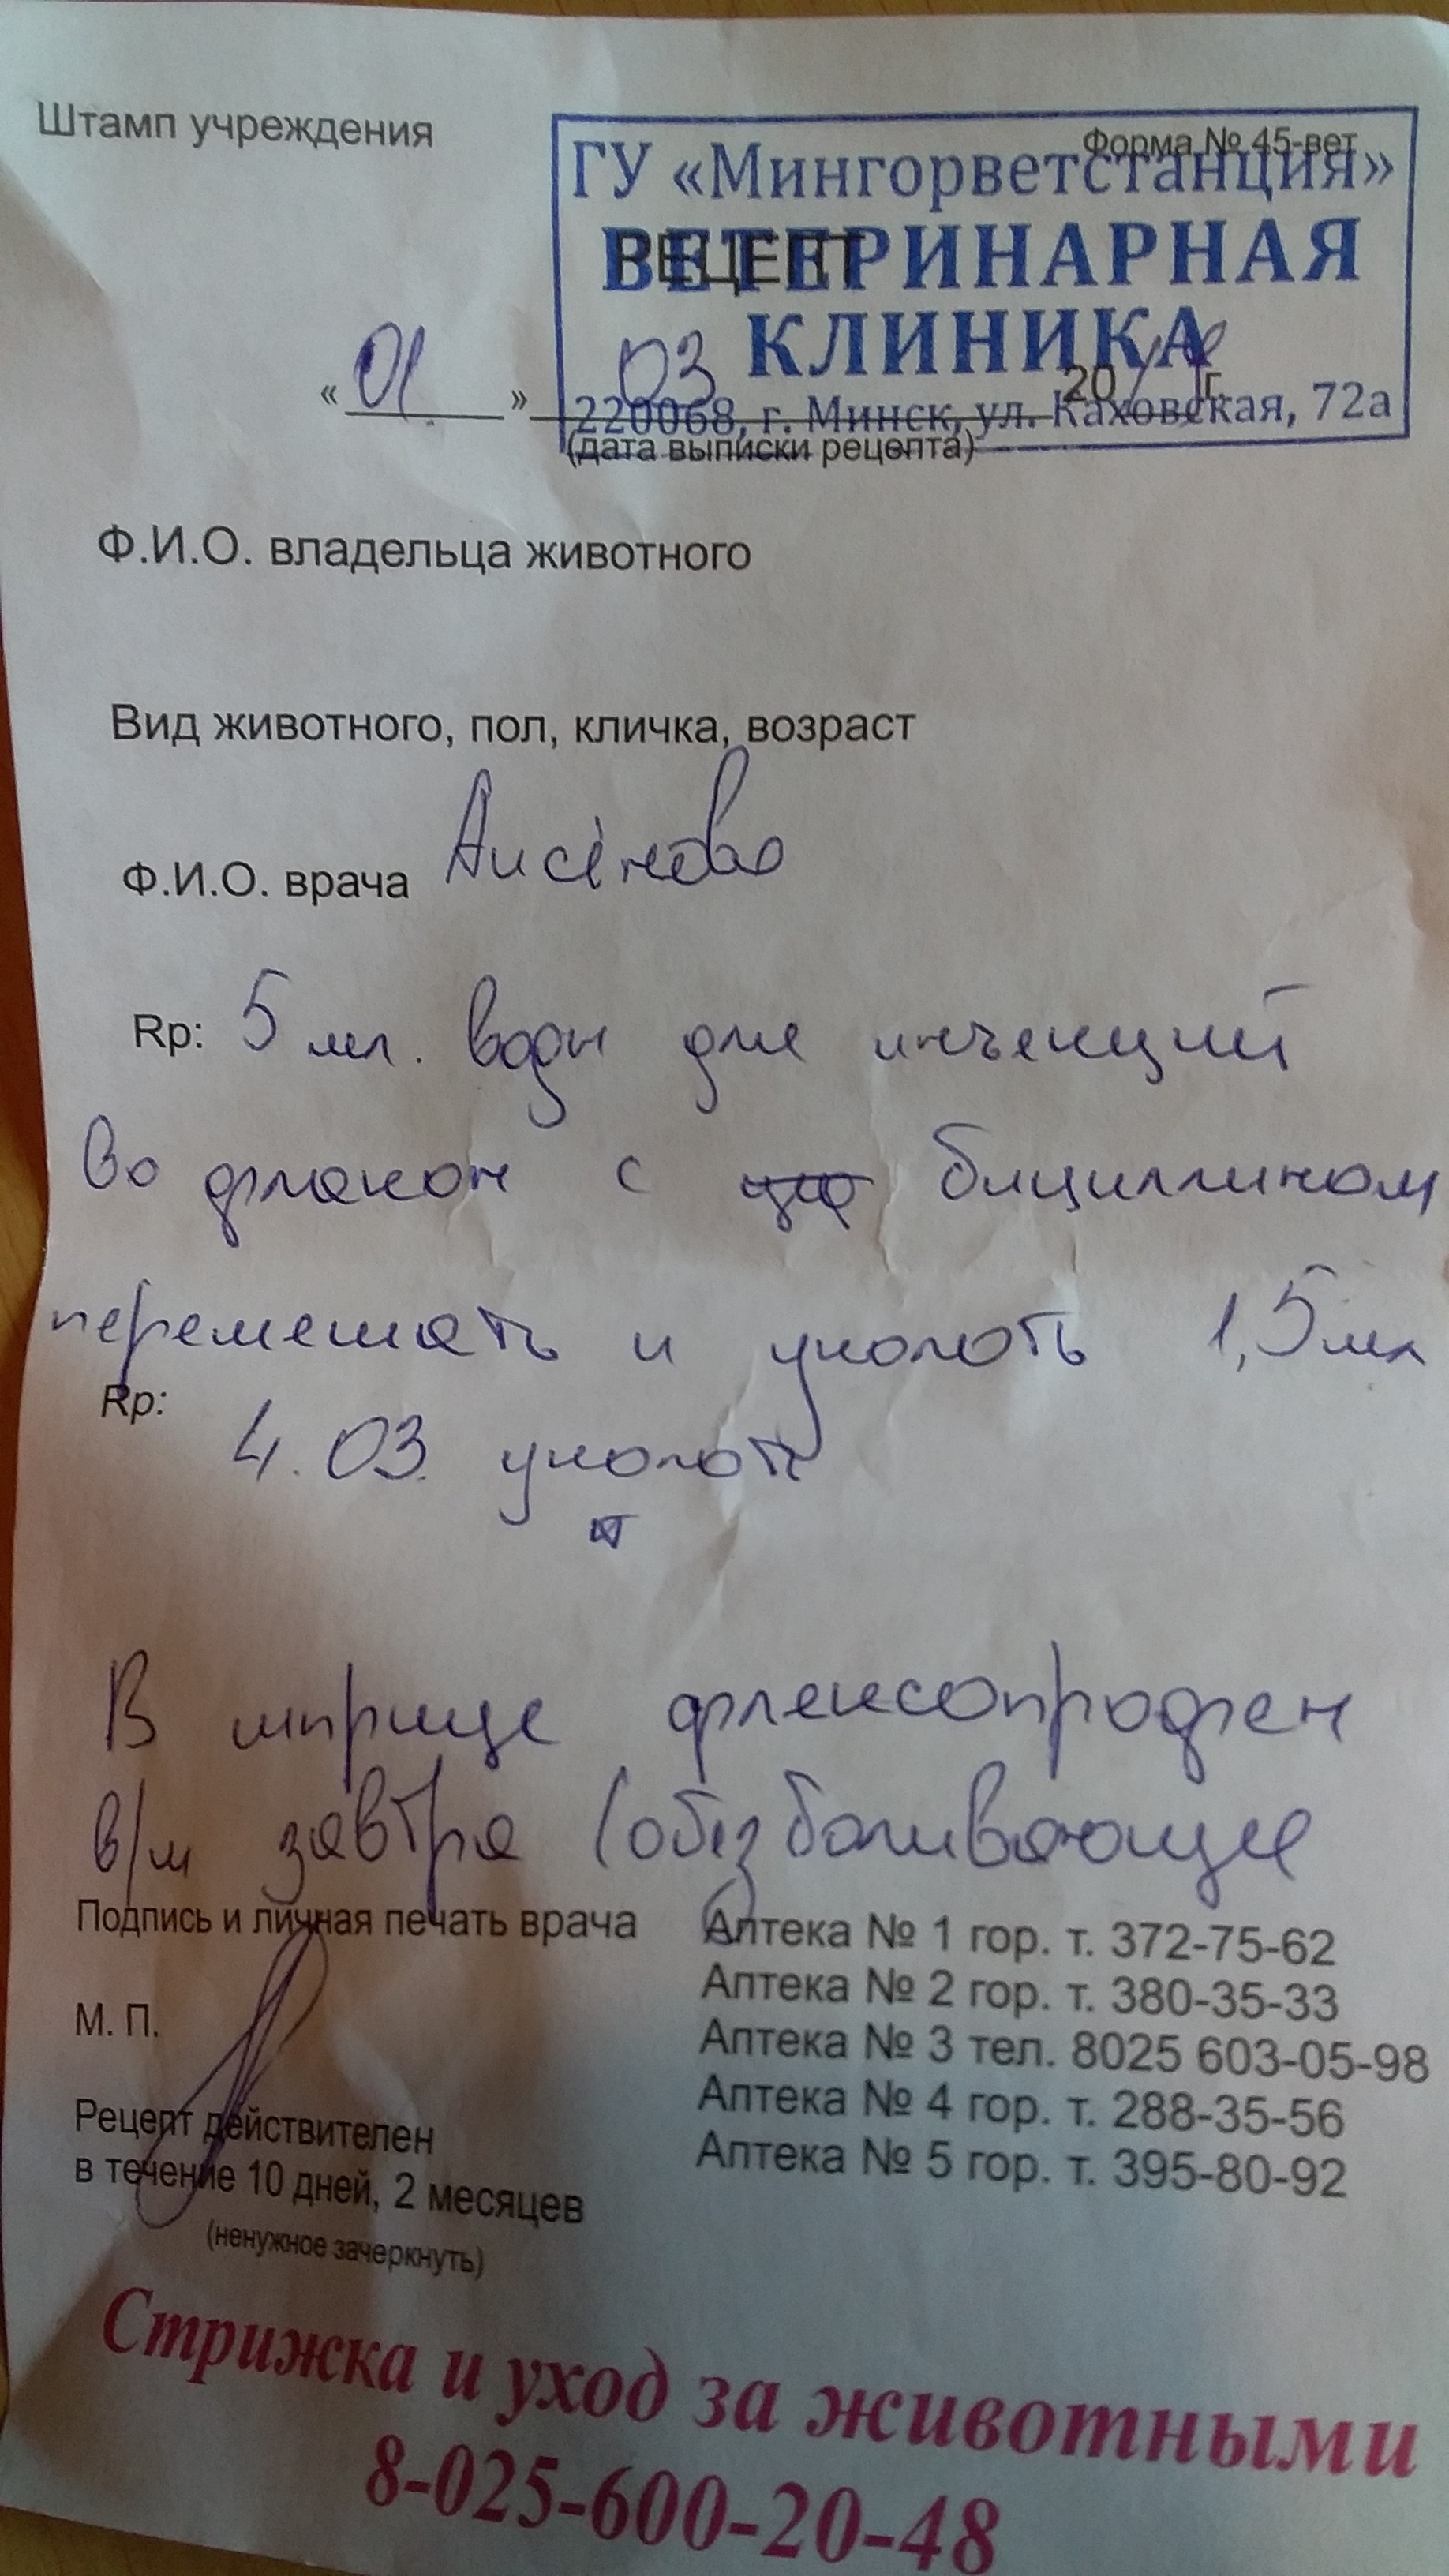 Штамп учреждения
Форма № 45-вет
ГУ «Мингорветстанция»
РЕЦЕПТ
ВЕТЕРИНАРНАЯ
КЛИНИКА
« 01 » 03 20 г.
220068, г. Минск, ул. Каховская, 72а
(дата выписки рецепта)
Ф.И.О. владельца животного
Вид животного, пол, кличка, возраст
Ф.И.О. врача
Rp: 5 мл. воды для инъекций
во флакон с бициллином
перемешать и уколоть 1,5 мл
Rp:
4.03. уколоть
В шприце флексопрофен
в/м завтра (обезболивающее
Подпись и личная печать врача
М. П.
Рецепт действителен
в течение 10 дней, 2 месяцев
(ненужное зачеркнуть)
Аптека № 1 гор. т. 372-75-62
Аптека № 2 гор. т. 380-35-33
Аптека № 3 тел. 8025 603-05-98
Аптека № 4 гор. т. 288-35-56
Аптека № 5 гор. т. 395-80-92
Стрижка и уход за животными
8-025-600-20-48